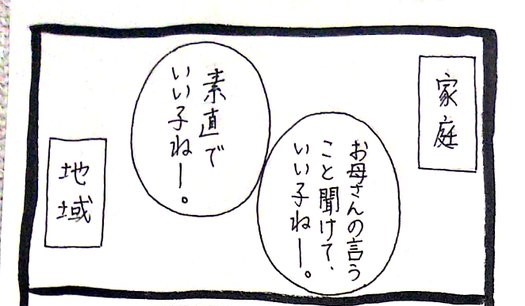 家庭
お母さんの言う
こと聞けて、
いい子ねー。
素直で
いい子ねー。
地域